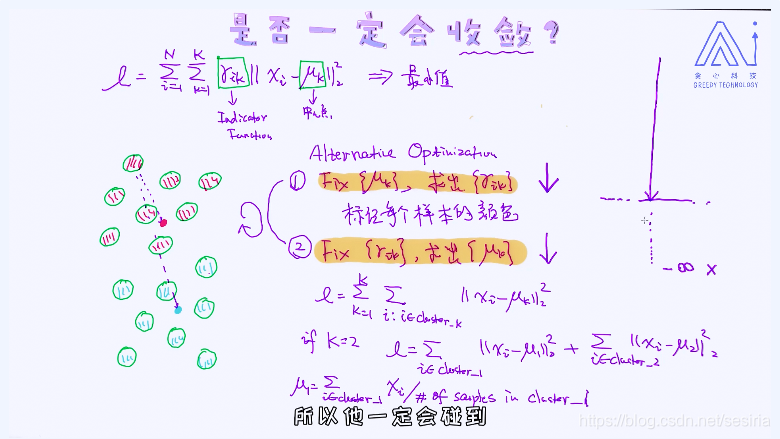 是否一定会收敛?
ℓ = ∑_{i=1}^{N} ∑_{k=1}^{K} γ_{ik} ‖x_i - μ_k‖_2^2 ⇒ 最小值
Indicator Function
中心点
贪心科技
GREEDY TECHNOLOGY
Alternative Optimization
① Fix {μ_k}, 求出 {γ_{ik}} ↓
标注每个样本的颜色
② Fix {γ_{ik}}, 求出 {μ_k} ↓
-∞ X
ℓ = ∑_{k=1}^{K} ∑_{i: i∈cluster_k} ‖x_i - μ_k‖_2^2
if K=2 ℓ = ∑_{i∈cluster_1} ‖x_i - μ_1‖_2^2 + ∑_{i∈cluster_2} ‖x_i - μ_2‖_2^2
μ_1 = ∑_{i∈cluster_1} x_i / # of samples in cluster_1
所以他一定会碰到
https://blog.csdn.net/sesiria